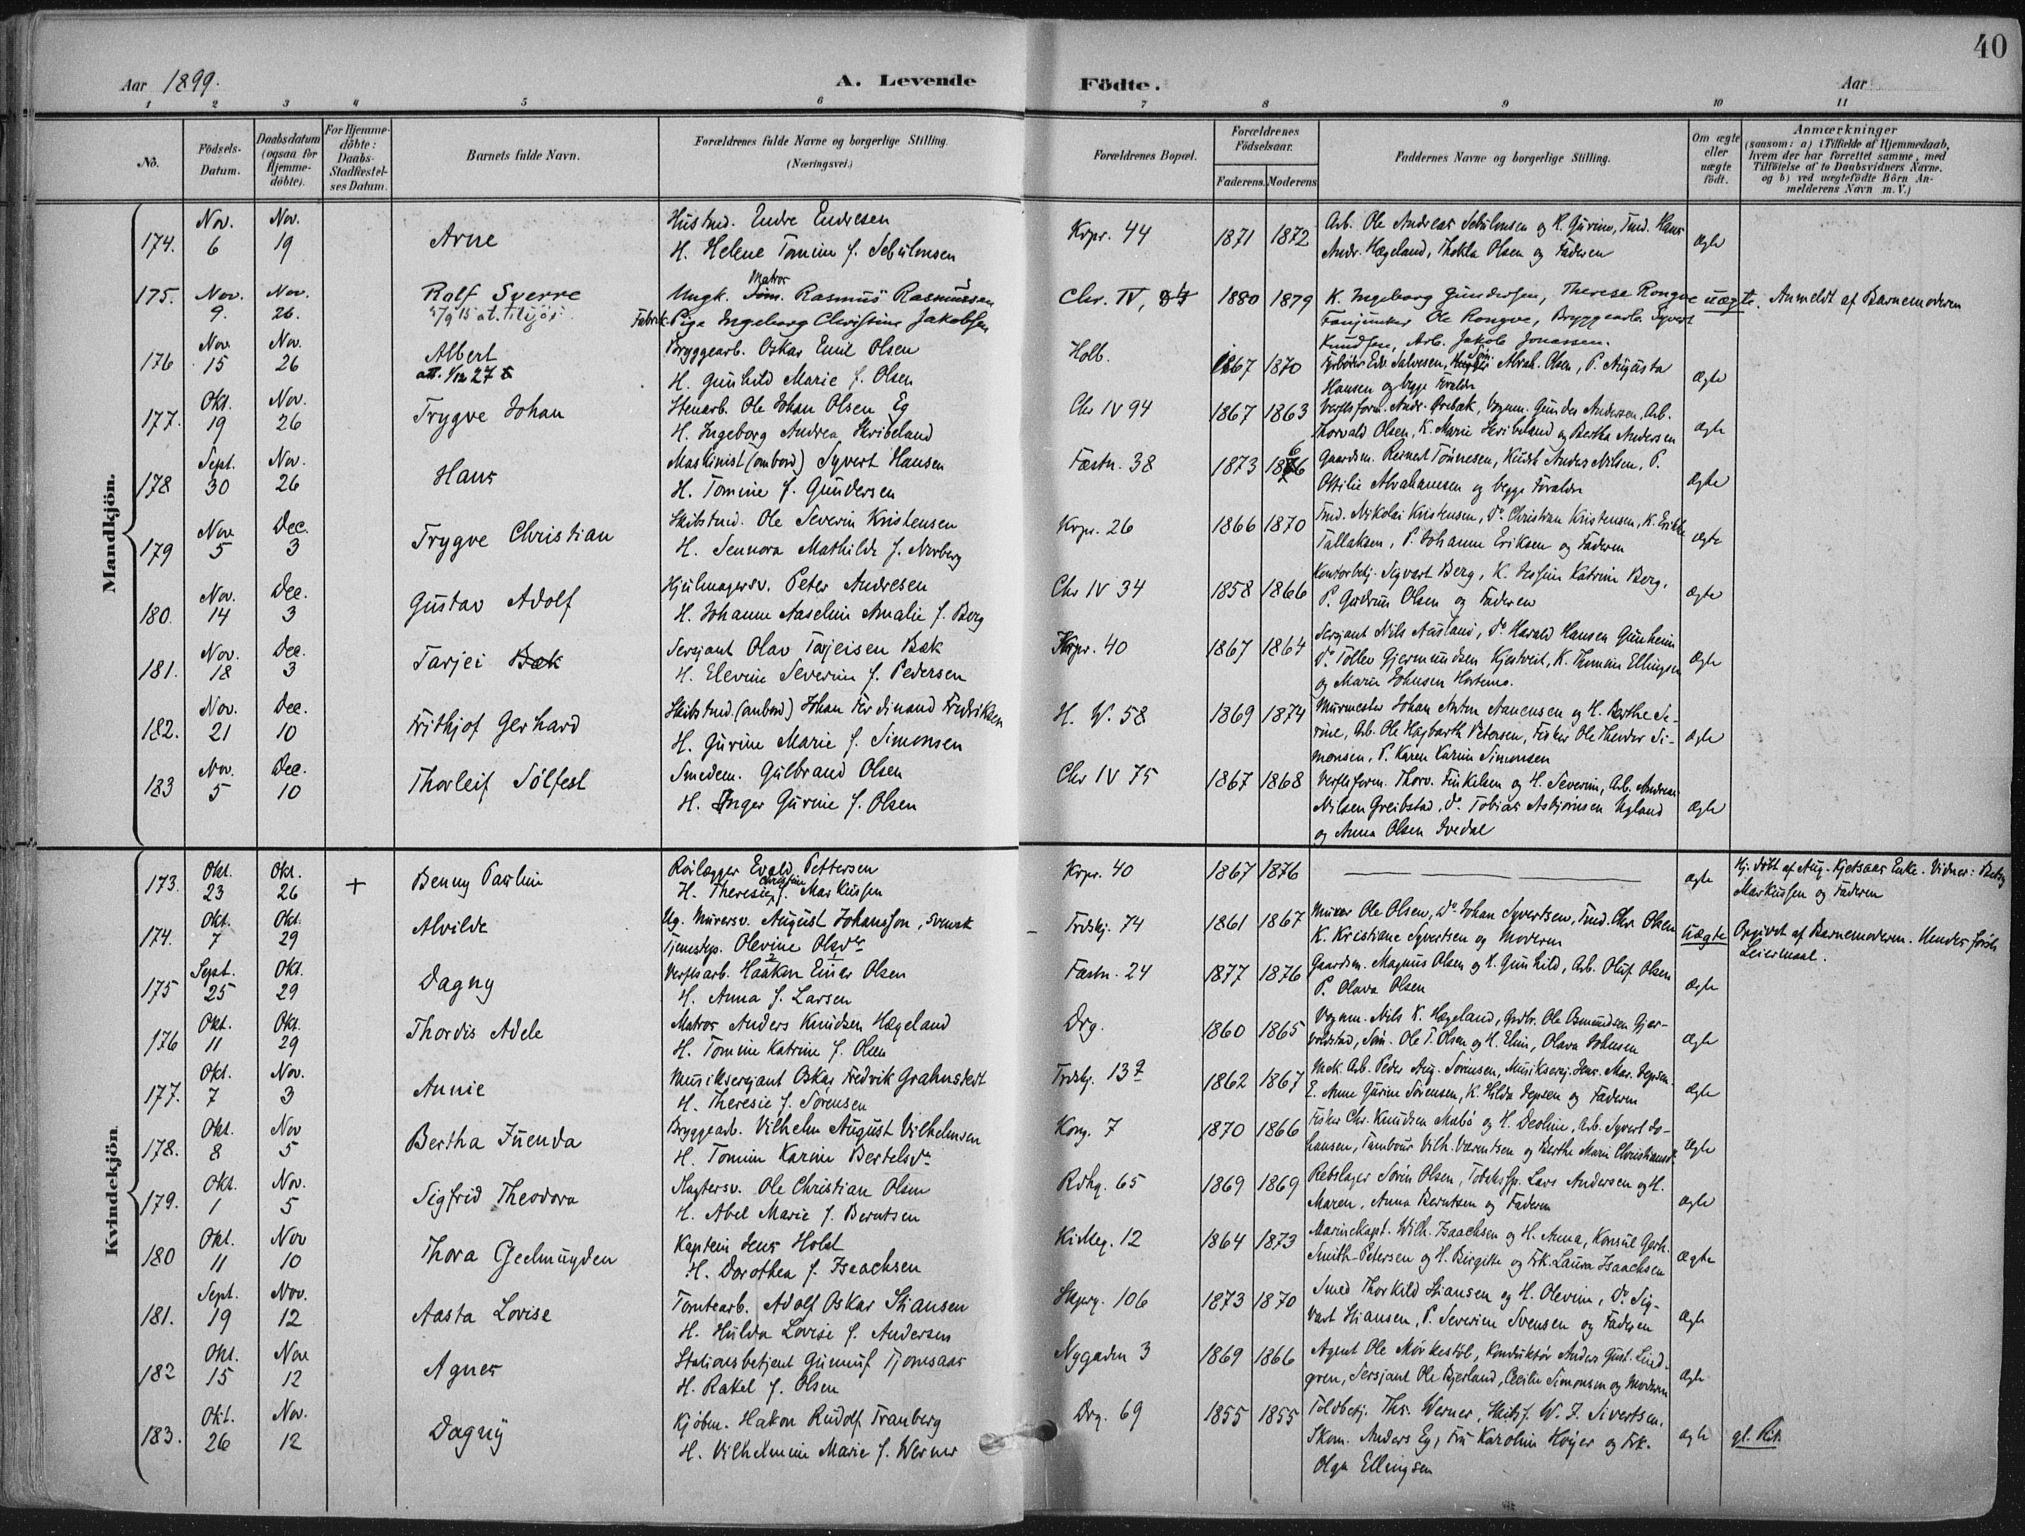 40
Aar 1899.
A. Levende Födte.
Aar
1 2 3 4 5 6 7 8 9 10 11
No.
Födsels-Datum.
Daabsdatum (ogsaa for Hjemme-döbte).
For Hjemme-döbte: Daabs-Stadfæstel-ses Datum.
Barnets fulde Navn.
Forældrenes fulde Navne og borgerlige Stilling. (Næringsvei.)
Forældrenes Bopæl.
Forældrenes Födselsaar.
Faderens. Moderens
Faddernes Navne og borgerlige Stilling.
Om ægte eller uægte födt.
Anmærkninger
(saasom: a) i Tilfælde af Hjemmedaab, hvem der har forrettet samme, med Tilföielse af to Daabsvidners Navne. og b) ved uægtefödte Börn An-melderens Navn m. V.)
Mandkjön.
174. Nov. 6 Nov. 19 Arne Hustmd. Endre Endresen
H. Helene Tomine f. Sebulonsen
Krpr. 44 1871 1872 Arb. Ole Andreas Sebulonsen og H. Gurine, Tmd. Hans
Andr. Hægeland, Thekla Olsen og Faderen ægte
175. Nov. 9. Nov. 26. Rolf Sverre Ungk. Matros Rasmus Rasmussen
Fabrik. Pige Ingeborg Christine Jakobsen
Chr. IV, 1880 1879 K. Ingeborg Gundersen, Therese Rongve
Ole Rongve, Bryggearb. Syvert
Knudsen, Arb. Jakob Jonassen.
uægte. Anmeldt af Barnemoderen
176 Nov. 15 Nov. 26 Albert
Bryggearb. Oskar Emil Olsen
H. Gunhild Marie f. Olsen
Holb. 1867 1870 Fyrbøder Edv. Salvesen, Abrah. Olsen, P. Augusta
Hansen og begge Foreldre ægte
177. Okt. 19 Nov. 26 Trygve Johan Stenarb. Ole Johan Olsen Eg
H. Ingeborg Andrea Skribeland
Chr IV 94 1867 1863 Verftsform. Andr. Ørebæk, Vognm. Gunder Andersen, Arb.
Thorvald Olsen, K. Marie Skribeland og Bertha Andersen ægte
178 Sept. 30 Nov. 26 Hans Maskinist (ombord) Syvert Hansen
H. Tomine f. Gundersen
Fæstn. 38 1873 Gaardm. Reinert Tönnesen, Kudsk Anders Nilsen, P.
Ottilie Abrahamsen og begge Foreldre ægte
179 Nov. 5 Dec. 3 Trygve Christian Skibstmd. Ole Severin Kristensen
H. Sennora Mathilde f. Norberg
Krpr. 26 1866 1870 Tmd. Nikolai Kristensen, Do Christian Kristensen, K. Erikke
Tallaksen, P. Johanne Eriksen og Faderen ægte
180. Nov. 14 Dec. 3 Gustav Adolf Hjulmagersv. Peter Andresen
H. Johanne Aaseline Amalie f. Berg
Chr IV 34 1858 1866 Kontorbetj. Sigvart Berg, K. Katrine Berg,
P. Gudrun Olsen og Faderen ægte
181. Nov. 18 Dec. 3 Tarjei Bæk Sersjant Olav Tarjeisen Bæk
H. Elevine Severine f. Pedersen
Krpr. 40 1867 1864 Sersjant Nils Ausland, Do Harald Hansen
Do Tollev Gjermundsen Kjestveit, K. Ellingsen
og Marie Johnsen ægte
182. Nov. 21 Dec. 10 Frithjof Gerhard Skibstmd. (ombord) Johan Ferdinand Fredriksen
H. Gurine Marie f. Simonsen
H. W. 58 1869 1874 Murmester Johan Anton Aanensen og H. Berthe Se-
rine, Arb. Ole Hagbarth Petersen, Fisker Ole Theodor Si-
monsen, P. Karen Karine Simonsen ægte
183 Nov. 5 Dec. 10 Thorleif Sölfest Smedem. Gulbrand Olsen
H. Inger Gurine f. Olsen
Chr IV 75 1867 1868 Verftsform. Thorv. Finkelsen og H. Severine, Arb. Andreas
Nilsen Greibstad, Do Tobias Asbjörnsen Ugland
og Anna Olsen Ivedal ægte
Kvindekjön.
173. Okt. 23 Okt. 26 + Benny Pauline Rörlægger Evald Pettersen
H. Theresie Christine f. Markussen
Krpr. 40 1867 1876 ægte Hj. döbt af Aug. Kjetsaas Enke. Vidner: Betzy
Markussen og Faderen
174. Okt. 7 Okt. 29 Alvilde Ug. Murersv. August Johansson, svensk
Tjenestep. Olevine Olsdr
Trdskj. 74 1861 1867 Murer Ole Olsen, Do Johan Syvertsen, Tmd. Chr. Olsen
K. Kristiane Syvertsen og Moderen
uægte Opgivet af Barnemoderen. Hendes förste
Leiermaal.
175 Sept. 25 Okt. 29 Dagny Verftsarb. Haakon Einer Olsen
H. Anna f. Larsen
Fæstn. 24 1877 1876 Gaardm. Magnus Olsen og H. Gunhild, Arb. Oluf Olsen
P. Olava Olsen ægte
176 Okt. 11 Okt. 29 Thordis Adele Matros Anders Knudsen Hægeland
H. Tomine Katrine f. Olsen
Drg. 1860 1865 Vognm. Nils K. Hægeland, Grdbr. Ole Osmundsen Gjer-
voldstad, Sm. Ole T. Olsen og H. Eline, Olava Johnsen ægte
177. Okt. 7 Nov. 3 Annie Musiksersjant Oskar Fredrik Grahnstedt
H. Theresie f. Sörensen
Trdskj. 13 1862 1867 Mek. Arb. Peder Aug. Sörensen, Musikserj. Henr. Mar. Jepsen
E. Anne Gurine Sörensen, K. Hilda Jepsen og Faderen ægte
178. Okt. 8 Nov 5 Bertha Juenda Bryggearb. Vilhelm August Vilhelmsen
H. Tomine Karine Bertelsdr
Kong. 7 1870 1866 Fisker Chr. Knudsen Mebö og H. Deoline, Arb. Syvert Jo-
hansen, Tambour Vilh. Værentsen og Berthe Marie ægte
179. Okt. 1 Nov. 5 Sigfrid Theodora Slagtersv. Ole Christian Olsen
H. Abel Marie f. Berntsen
Rdhg. 65 1869 1869 Rebslager Sörin Olsen, Tobaksfp. Lars Andersen og H.
Maren, Anna Berntsen og Faderen ægte
180 Okt. 11 Nov 10 Thora Geelmuyden Kaptein Jens Holst
H. Dorothea f. Isaachsen
Kirkeg. 12 1864 1873 Marinekapt. Wilh. Isaachsen og H. Anna, Konsul Gerh.
Smith-Petersen og H. Birgitte og Frk. Laura Isaachsen ægte
181. Sept. 19 Nov. 12 Aasta Lovise Tomtearb. Adolf Oskar Stiansen
H. Hulda Lovise f. Andersen
Skjerg. 106 1873 1870 Smed Thorkild Stiansen og H. Olevine, Do Sig-
vart Stiansen, P. Severine Svensen og Faderen ægte
182 Okt. 15 Nov 12 Agnes Stationsbetjent Gunnuf Tjomsaas
H. Rakel f. Olsen
Nygaden 3 1869 1866 Agent Ole Mørkestöl, Konduktör Anders Gust. Lind-
gren, Sersjant Ole Bjerland, Cecilie Simonsen og Moderen ægte
183. Okt. 26 Nov. 12 Dagny Kjöbm. Hakon Rudolf Tranberg
H. Vilhelmine Marie f. Werner
Drg. 69 1855 1855 Toldbetj. Ths. Werner, Skibsf. W. J. Sivertsen,
Skom. Anders Eg, Fru Karoline Höyer og Frk.
Olga Ellingsen ægte gl. Rit.